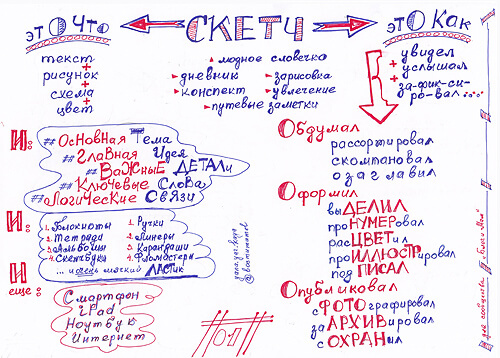 это Что
СКЕТЧ
это Как
текст
+
рисунок
+
схема
+
цвет
модное словечко
дневник
зарисовка
конспект
увлечение
путевые заметки
увидел
+
услышал
+
за-фик-си-
ро-вал....
И:
## ОсНовНая Тема
## ГлаВная Идея
## ВаЖНЫе ДЕТАЛи
## КлюЧевые СлоВа
## ЛОГиЧесКие СВЯЗи
И:
1. Блокноты
2. Тетради
3. Альбомы
4. Скетчбуки
1. Ручки
2. Линеры
3. Карандаши
4. Фломастеры
... и очень мягкий ЛАСТик
И
еще:
Смартфон
iPad
Ноутбук
Интернет
Обдумал
рассортировал
скомпановал
озаглавил
Оформил
выДЕЛИЛ
проНУМЕРовал
расЦВЕТил
проИЛЛЮСТРировал
подПИСАЛ
Опубликовал
сФОТОграфировал
заАРХИВировал
сОХРАНил
//01//
для сообщества